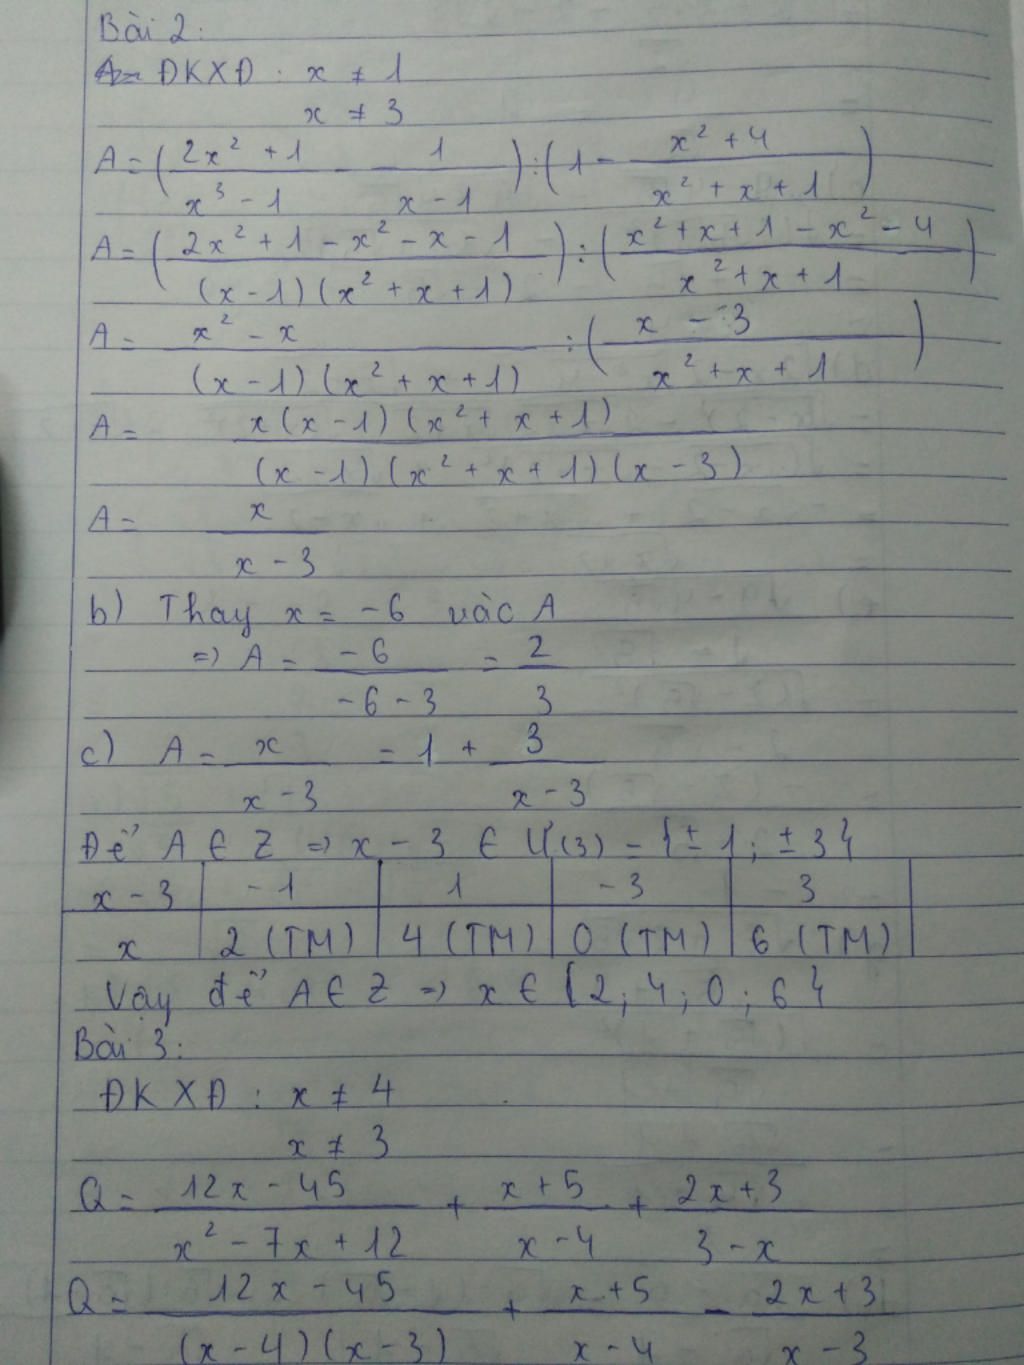 Bài 2:
ĐKXĐ: x ≠ 1
x ≠ 3
A = ( (2x² + 1)/(x³ - 1) - 1/(x - 1) ) : ( 1 - (x² + 4)/(x² + x + 1) )
A = ( (2x² + 1 - x² - x - 1)/((x - 1)(x² + x + 1)) ) : ( (x² + x + 1 - x² - 4)/(x² + x + 1) )
A = (x² - x)/((x - 1)(x² + x + 1)) : ( (x - 3)/(x² + x + 1) )
A = (x(x - 1)(x² + x + 1))/((x - 1)(x² + x + 1)(x - 3))
A = x/(x - 3)
b) Thay x = -6 vào A
=> A = (-6)/(-6 - 3) = 2/3
c) A = x/(x - 3) = 1 + 3/(x - 3)
Để A ∈ Z => x - 3 ∈ Ư(3) = {±1; ±3}
x - 3 | -1 | 1 | -3 | 3
x | 2 (TM) | 4 (TM) | 0 (TM) | 6 (TM)
Vậy để A ∈ Z => x ∈ {2; 4; 0; 6}
Bài 3:
ĐKXĐ: x ≠ 4
x ≠ 3
Q = (12x - 45)/(x² - 7x + 12) + (x + 5)/(x - 4) + (2x + 3)/(3 - x)
Q = (12x - 45)/((x - 4)(x - 3)) + (x + 5)/(x - 4) - (2x + 3)/(x - 3)